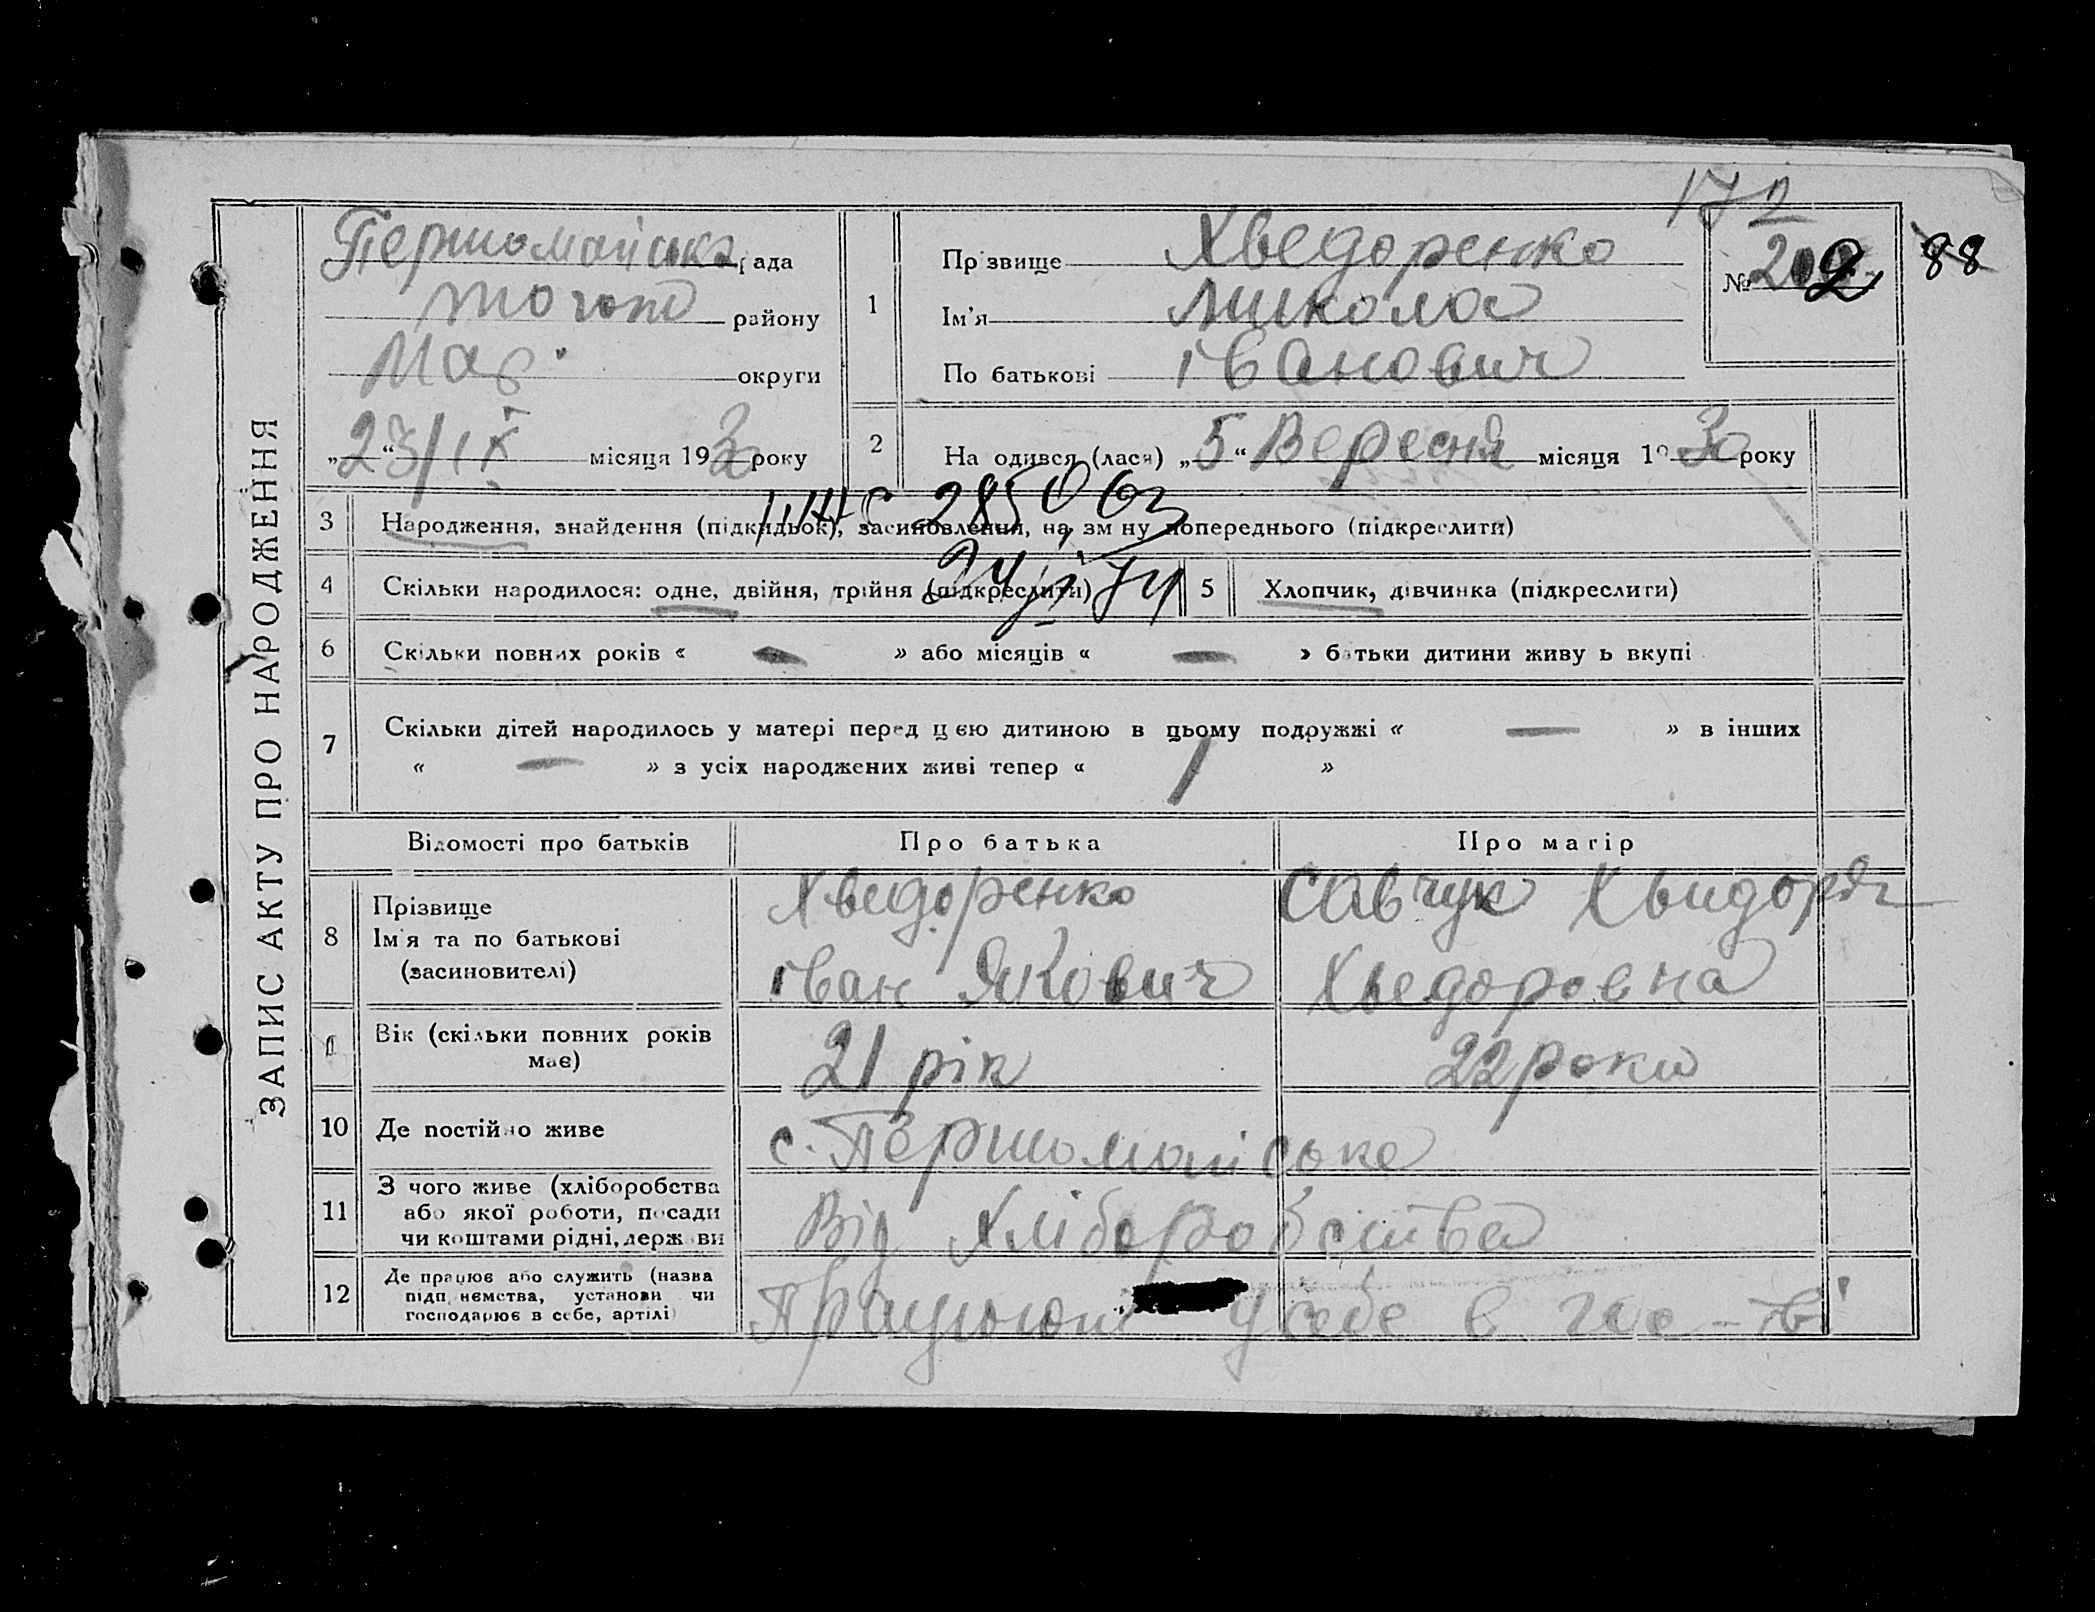 ЗАПИС АКТУ ПРО НАРОДЖЕННЯ
Першомайська рада
того ж району
Мар. округи
„23/IX“ місяця 1930 року
1
Прізвище Хведоренко
Ім'я Микола
По батькові Іванович
172
№ 202
88
2
Народився (лася) „5“ Вересня місяця 1930 року
3 Народження, знайдення (підкидьок), засиновлення, на зміну попереднього (підкреслити)
285063
4 Скільки народилося: одне, двійня, трійня (підкреслити)
5 Хлопчик, дівчинка (підкреслити)
6 Скільки повних років « — » або місяців « — » батьки дитини живуть вкупі
7 Скільки дітей народилось у матері перед цією дитиною в цьому подружжі « — » в інших
« — » з усіх народжених живі тепер « / »
Відомості про батьків Про батька Про матір
8 Прізвище
Ім'я та по батькові
(засиновителі)
Хведоренко
Іван Якович
Савчук Хвидоря
Хведоровна
Вік (скільки повних років
має)
21 рік
22 роки
10 Де постійно живе
с. Першомайське
11 З чого живе (хліборобства
або якої роботи, посади
чи коштами рідні, держави
Від хліборобства
12 Де працює або служить (назва
підприємства, установи чи
господарює в себе, артілі)
Працюють у себе в гос-ві